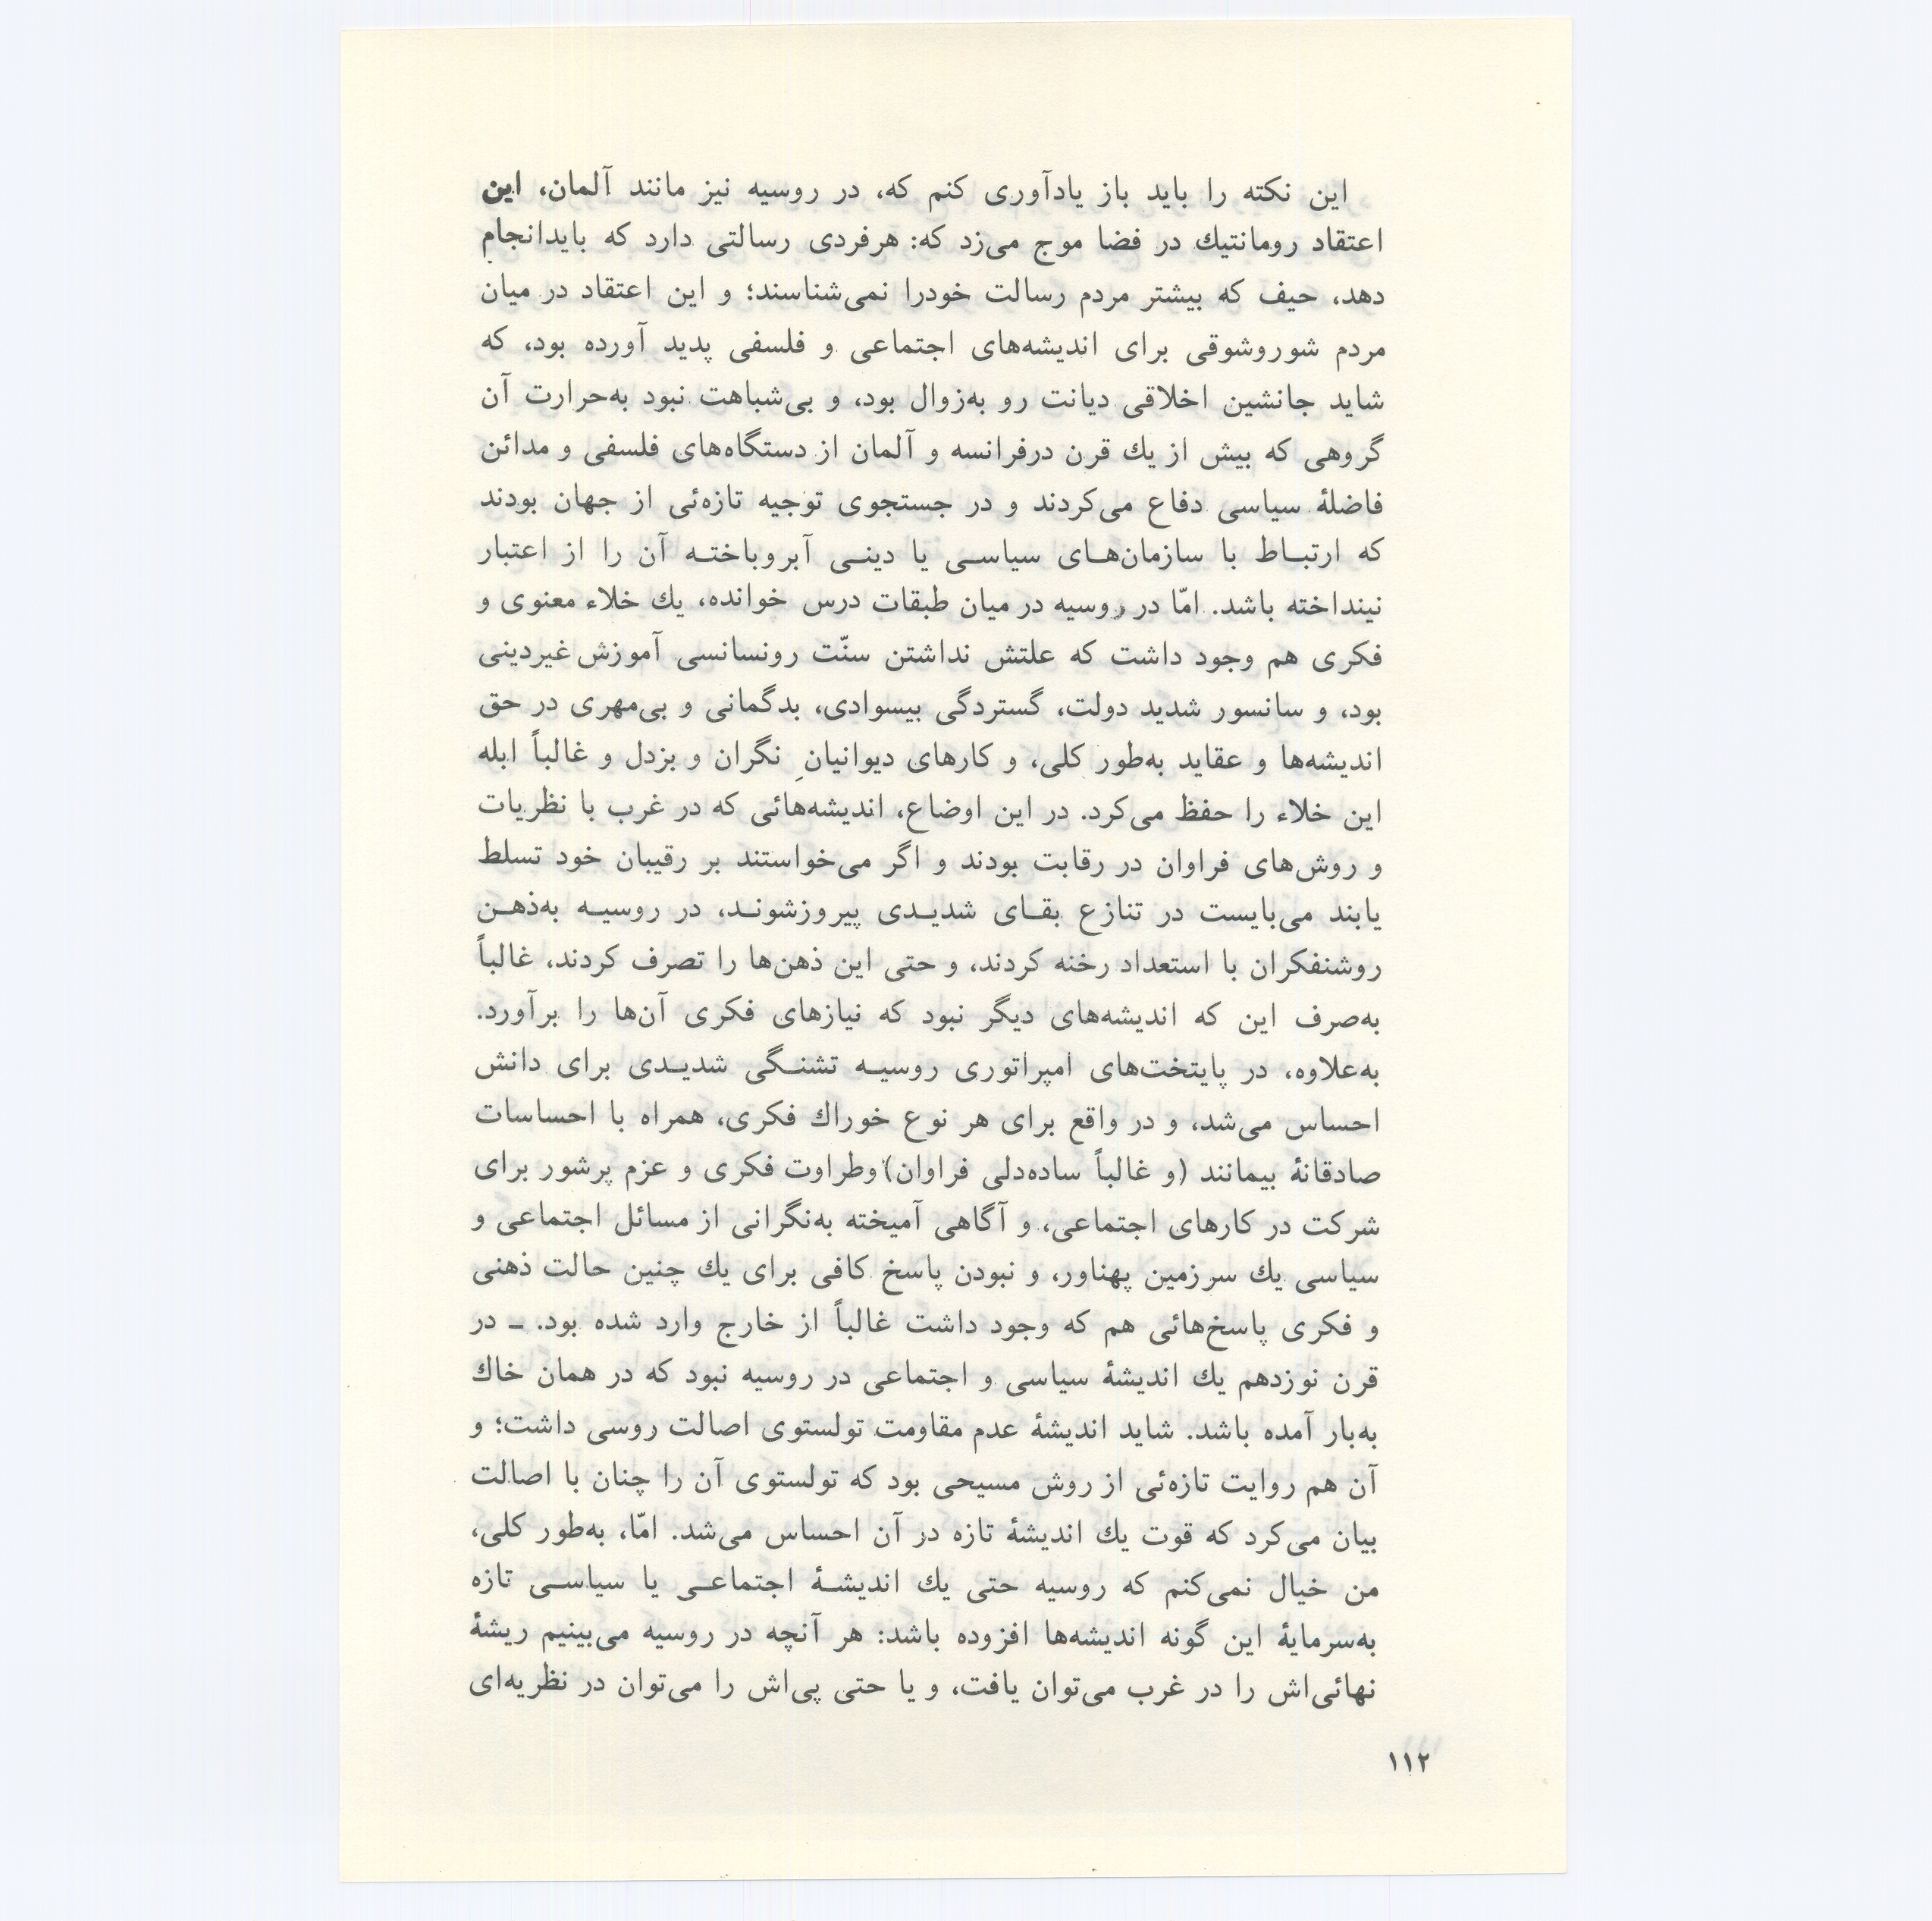 این نکته را باید باز یادآوری کنم که، در روسیه نیز مانند آلمان، این
اعتقاد رومانتیك در فضا موج می‌زد که: هرفردی رسالتی دارد که بایدانجام
دهد، حیف که بیشتر مردم رسالت خودرا نمی‌شناسند؛ و این اعتقاد در میان
مردم شوروشوقی برای اندیشه‌های اجتماعی و فلسفی پدید آورده بود، که
شاید جانشین اخلاقی دیانت رو به‌زوال بود، و بی‌شباهت نبود به‌حرارت آن
گروهی که بیش از یك قرن درفرانسه و آلمان از دستگاه‌های فلسفی و مدائن
فاضلهٔ سیاسی دفاع می‌کردند و در جستجوی توجیه تازه‌ئی از جهان بودند
که ارتبـاط با سازمان‌هـای سیاسـی یا دینـی آبروباختـه آن را از اعتبار
نینداخته باشد. امّا در روسیه در میان طبقات درس خوانده، یك خلاء معنوی و
فکری هم وجود داشت که علتش نداشتن سنّت رونسانسی آموزش غیردینی
بود، و سانسور شدید دولت، گستردگی بیسوادی، بدگمانی و بی‌مهری در حق
اندیشه‌ها و عقاید به‌طور کلی، و کارهای دیوانیانِ نگران و بزدل و غالباً ابله
این خلاء را حفظ می‌کرد. در این اوضاع، اندیشه‌هائی که در غرب با نظریات
و روش‌های فراوان در رقابت بودند و اگر می‌خواستند بر رقیبان خود تسلط
یابند می‌بایست در تنازع بقـای شدیـدی پیروزشونـد، در روسیـه به‌ذهـن
روشنفکران با استعداد رخنه کردند، و حتی این ذهن‌ها را تصرف کردند، غالباً
به‌صرف این که اندیشه‌های دیگر نبود که نیازهای فکری آن‌ها را برآورد.
به‌علاوه، در پایتخت‌های امپراتوری روسیـه تشنـگی شدیـدی برای دانش
احساس می‌شد، و در واقع برای هر نوع خوراك فکری، همراه با احساسات
صادقانهٔ بیمانند (و غالباً ساده‌دلی فراوان) وطراوت فکری و عزم پرشور برای
شرکت در کارهای اجتماعی، و آگاهی آمیخته به‌نگرانی از مسائل اجتماعی و
سیاسی یك سرزمین پهناور، و نبودن پاسخ کافی برای یك چنین حالت ذهنی
و فکری پاسخ‌هائی هم که وجود داشت غالباً از خارج وارد شده بود. ـ در
قرن نوزدهم یك اندیشهٔ سیاسی و اجتماعی در روسیه نبود که در همان خاك
به‌بار آمده باشد. شاید اندیشهٔ عدم مقاومت تولستوی اصالت روسی داشت؛ و
آن هم روایت تازه‌ئی از روش مسیحی بود که تولستوی آن را چنان با اصالت
بیان می‌کرد که قوت یك اندیشهٔ تازه در آن احساس می‌شد. امّا، به‌طور کلی،
من خیال نمی‌کنم که روسیه حتی یك اندیشـهٔ اجتماعـی یا سیاسـی تازه
به‌سرمایهٔ این گونه اندیشه‌ها افزوده باشد: هر آنچه در روسیه می‌بینیم ریشهٔ
نهائی‌اش را در غرب می‌توان یافت، و یا حتی پی‌اش را می‌توان در نظریه‌ای
۱۱۲